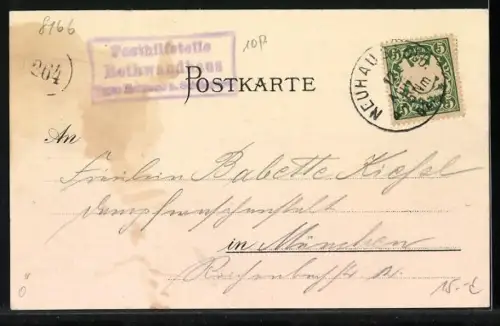 8166
(264)
Posthilfstelle
Rothwandhaus
10β
POSTKARTE
NEUHAU
5 5
An
Fräulein Babette Kiesel
Dampfwaschanstalt
in München
Reichenbachstr
15.-